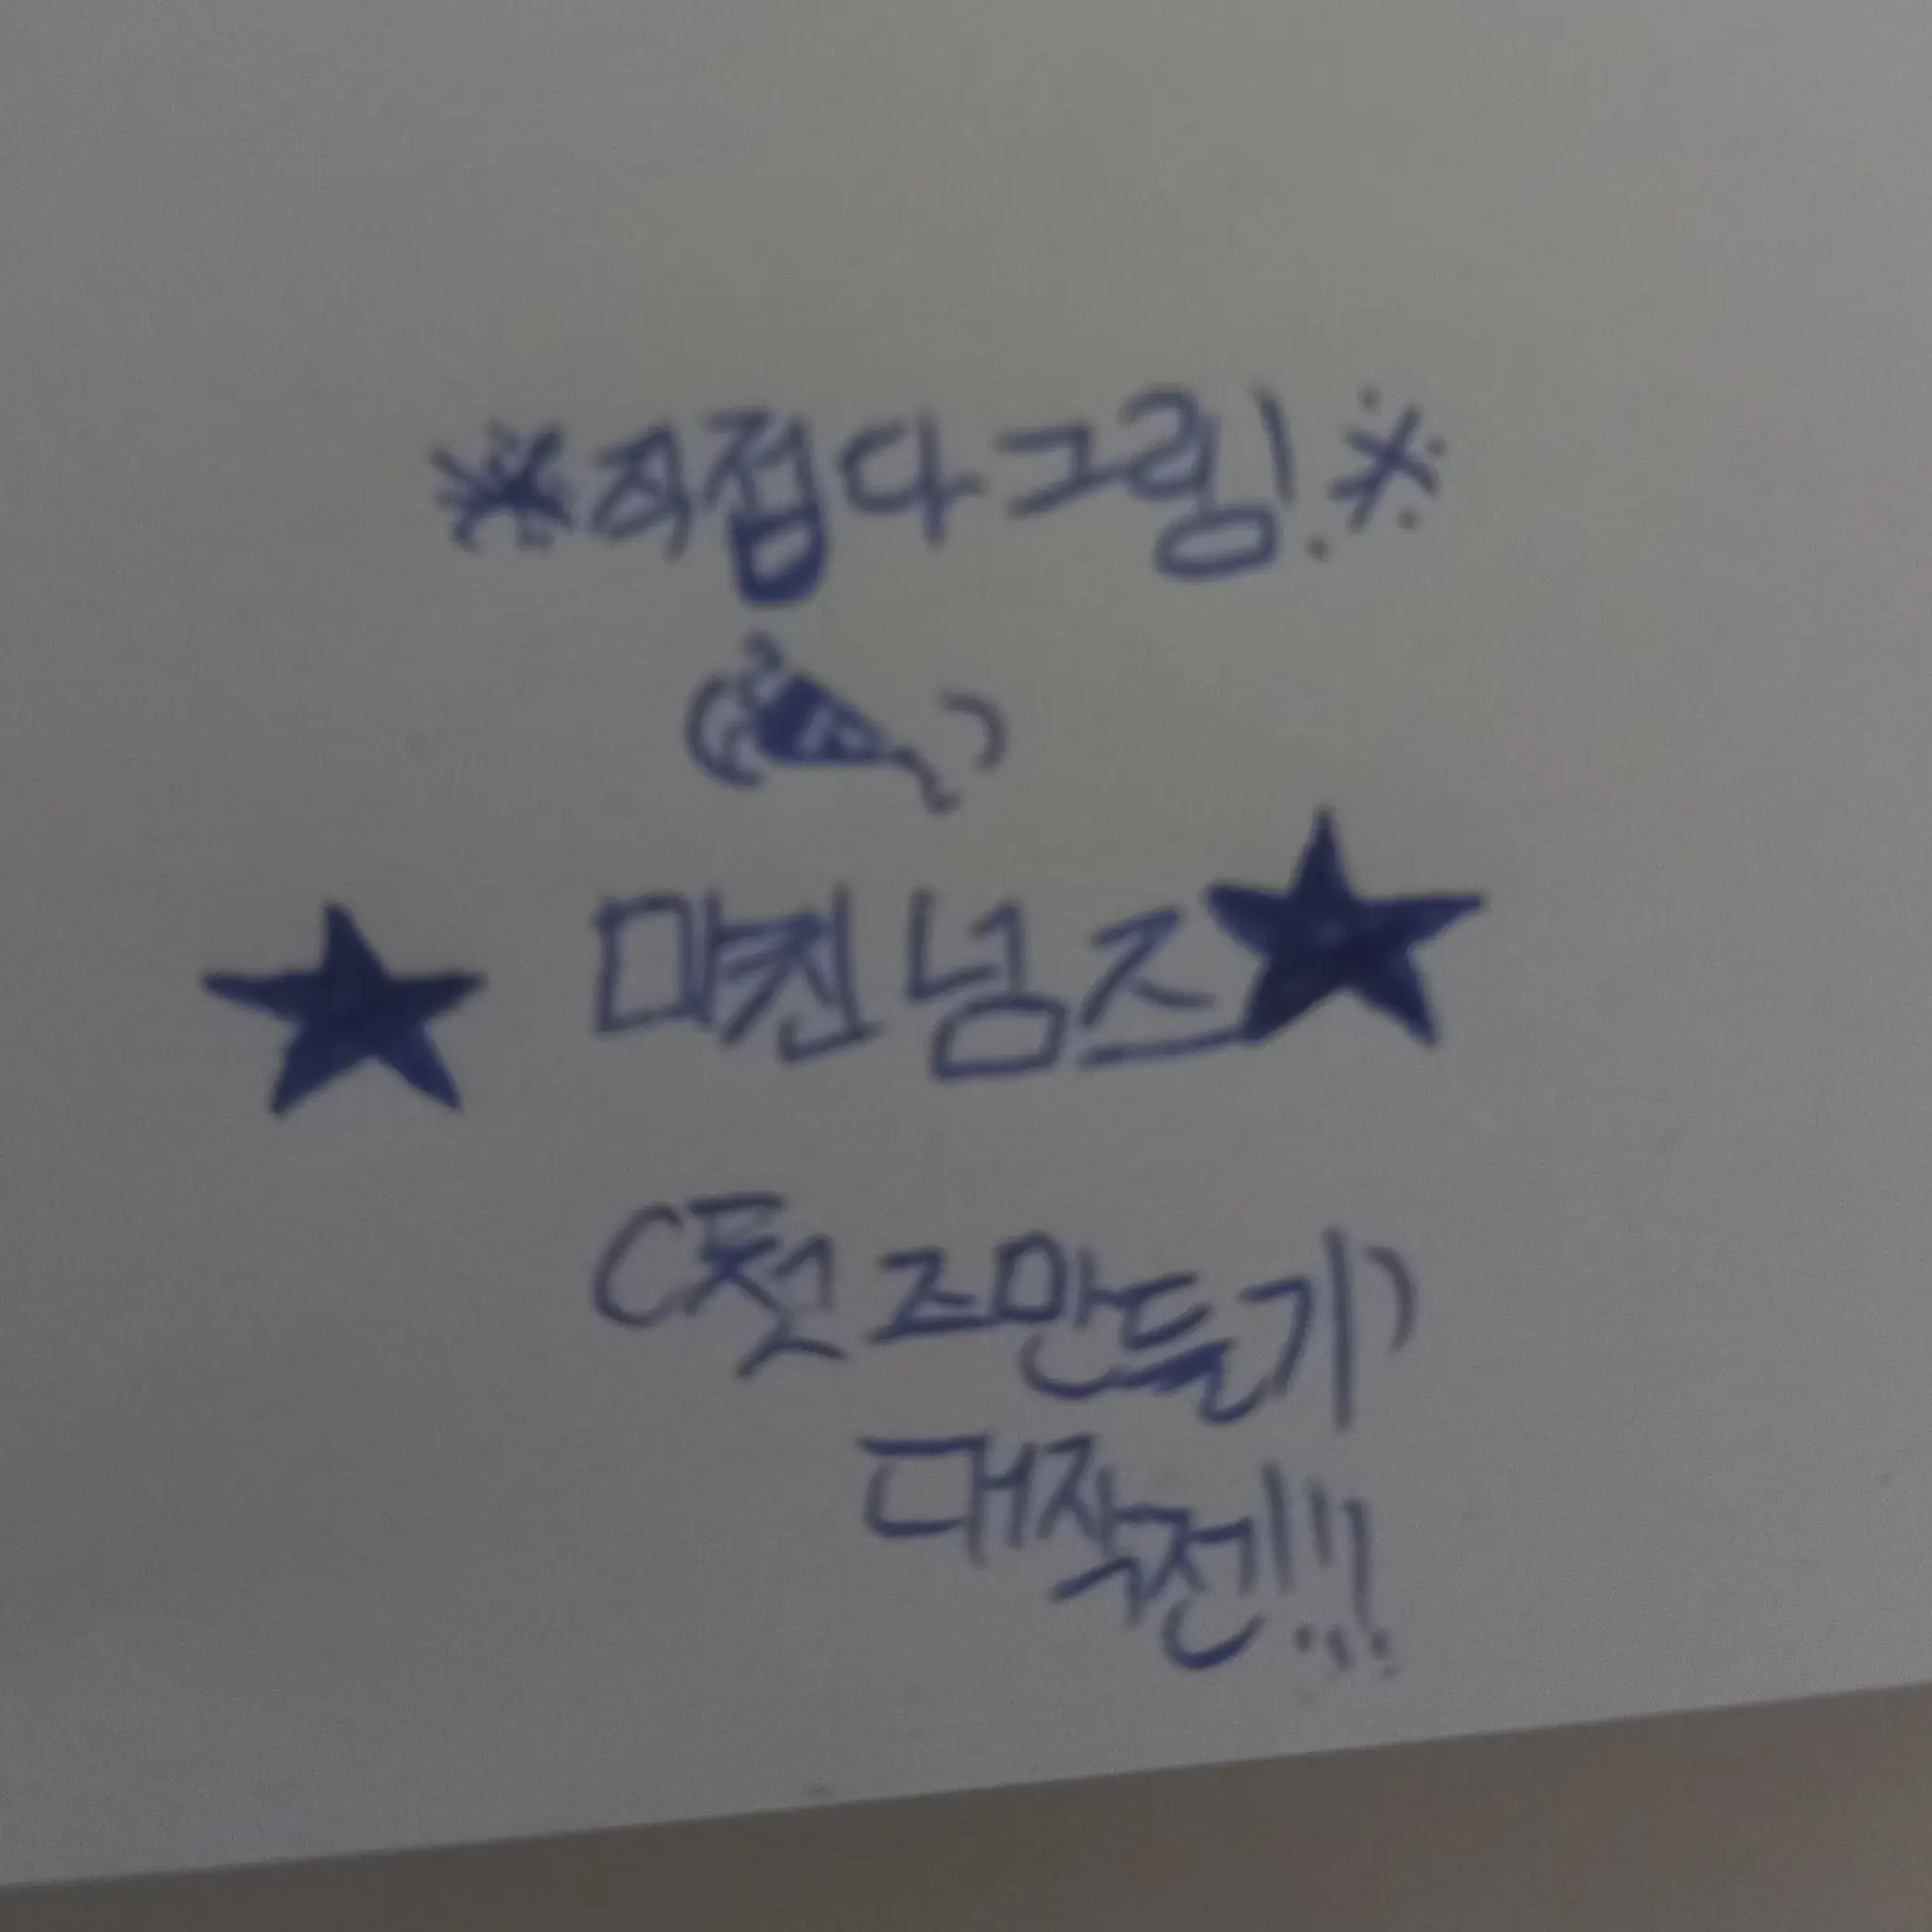 ※직접 다 그림!※
( )
★ 미친 넘즈★
(굿즈만들기)
대작전!!!